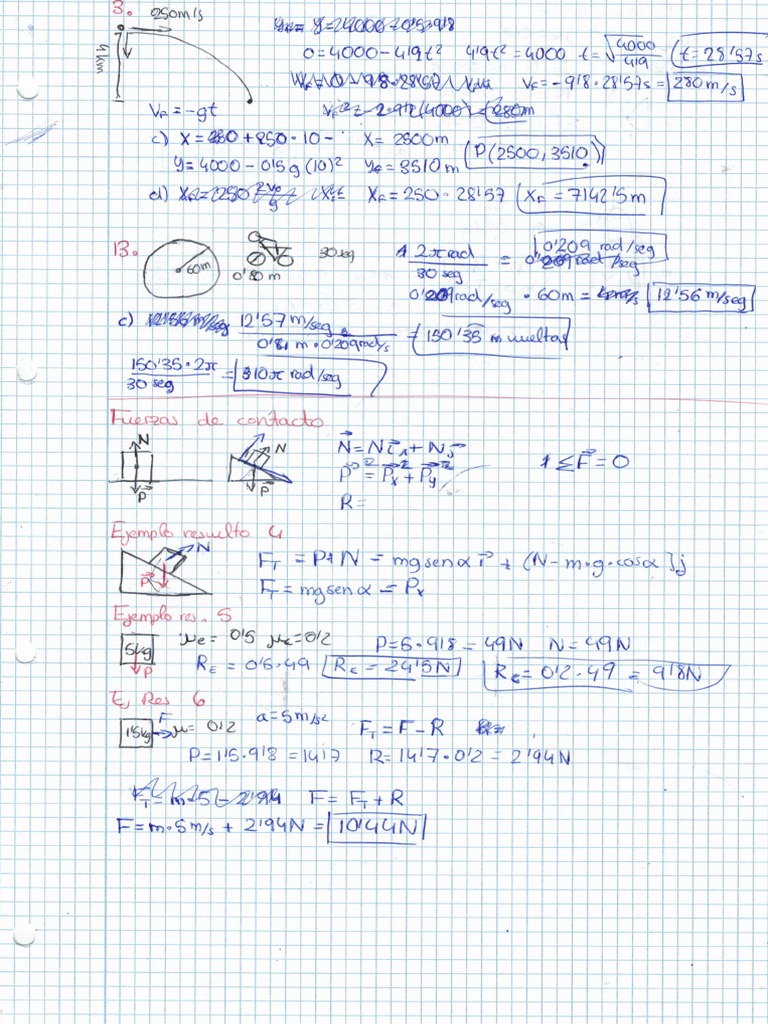 3.
250m/s
4km
0=4000-4'9t² 4'9t²=4000 t=√4000/4'9 t=28'57s
VF=-9'8·28'57s=280m/s
VF=-gt
c) X= +250·10- X=2500m
Y=4000-0'5g(10)² Y=3510m P(2500,3510)
d) XF=250·28'57 XF=7142'5m
13.
60m 0'80m 30seg
2π rad/30 seg = 0'209 rad/seg
0'209rad/seg·60m= 12'56m/seg
c) 12'57m/seg / 0'8 m·0'209rad/s = 150'35 vueltas
150'35·2π/30 seg = 310π rad/seg
Fuerzas de contacto
N N N=N+N
P P P²=Px²+Py² ΣF=0
R=
Ejemplo resuelto 4
N FT=P+N=mg senα i+(N-m·g·cosα)j
P FT=mg senα=Px
Ejemplo res. 5
5kg μe=0'5 μc=0'2 P=5·9'8=49N N=49N
P RE=0'5·49 RE=24'5N Rc=0'2·49=9'8N
E, Res 6
1'5kg F μ=0'2 a=5m/s² FT=F-R
P=1'5·9'8=14'7 R=14'7·0'2=2'94N
F=FT+R
F=m·5m/s+2'94N=10'44N